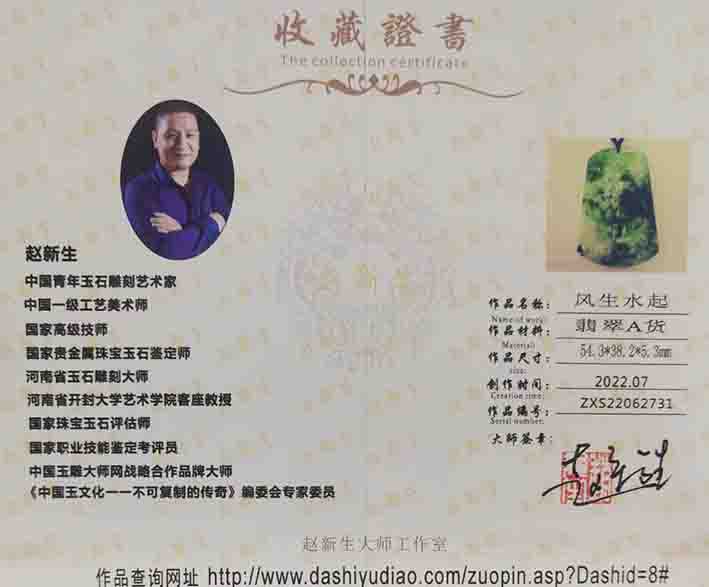 收藏證書
The collection certificate
赵新生
中国青年玉石雕刻艺术家
中国一级工艺美术师
国家高级技师
国家贵金属珠宝玉石鉴定师
河南省玉石雕刻大师
河南省开封大学艺术学院客座教授
国家珠宝玉石评估师
国家职业技能鉴定考评员
中国玉雕大师网战略合作品牌大师
《中国玉文化一一不可复制的传奇》编委会专家委员
作品名称: 风生水起
Name of work:
作品材料: 翡翠A货
Material:
作品尺寸: 54.3*38.2*5.3mm
size:
创作时间: 2022.07
Creation time:
作品编号: ZXS22062731
Serial number:
大师签章:
赵新生大师工作室
作品查询网址 http://www.dashiyudiao.com/zuopin.asp?Dashid=8#